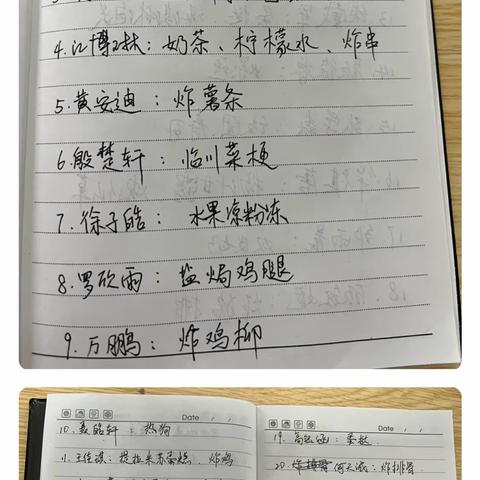 4.江博琳：奶茶、柠檬水、炸串
5.黄安迪：炸薯条
6.殷楚轩：临川菜梗
7.徐子皓：水果凉粉冻
8.罗欣雨：盐焗鸡腿
9.万鹏：炸鸡柳
Date
10.聂皓轩：热狗
11.王佳琪：提拉米苏蛋糕、炸鸡
Date
19.
20.：炸排骨